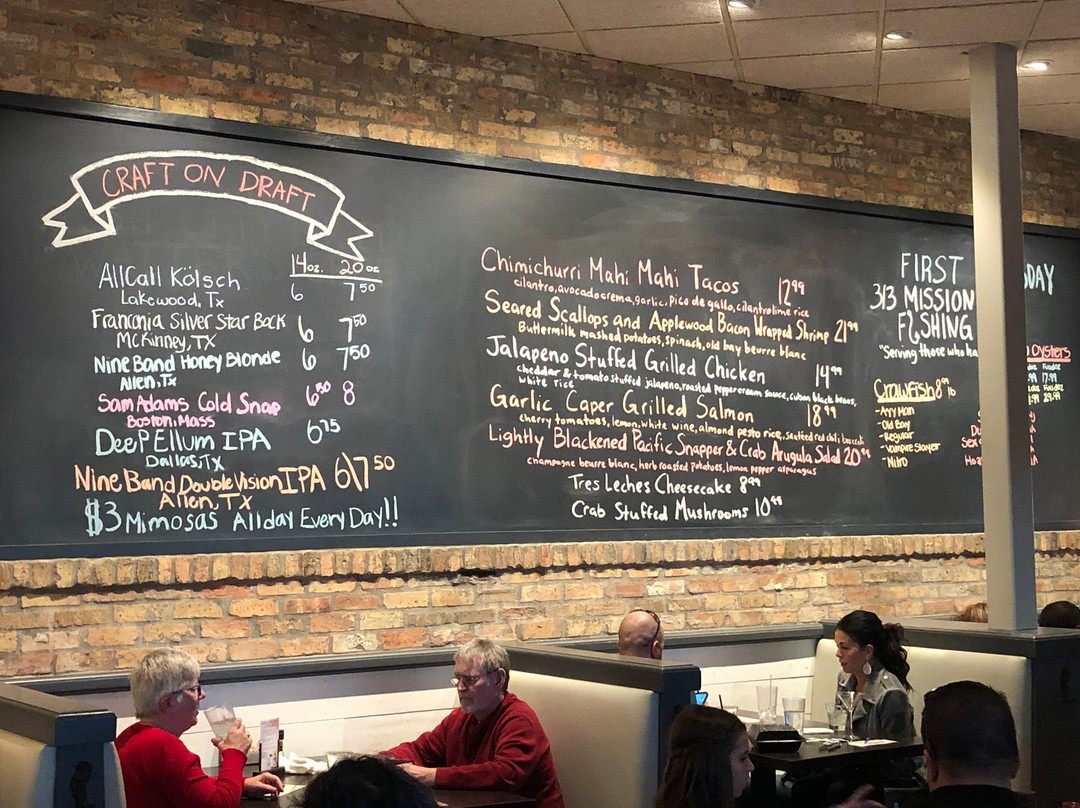 CRAFT ON DRAFT
14oz. 20oz
AllCall Kölsch 6 7⁵⁰
Lakewood, Tx
Franconia Silver Star Bock 6 7⁵⁰
McKinney, TX
Nine Band Honey Blonde 6 7⁵⁰
Allen, Tx
Sam Adams Cold Snap 6⁵⁰ 8
Boston, Mass
Deep Ellum IPA 6⁷⁵
Dallas, TX
Nine Band Double Vision IPA 6\7⁵⁰
Allen, TX
$3 Mimosas All day Every Day!!
Chimichurri Mahi Mahi Tacos 12⁹⁹
cilantro, avocado crema, garlic, pico de gallo, cilantro lime rice
Seared Scallops and Applewood Bacon Wrapped Shrimp 21⁹⁹
Buttermilk mashed potatoes, spinach, old bay beurre blanc
Jalapeno Stuffed Grilled Chicken 14⁹⁹
cheddar & tomato stuffed jalapeno, roasted pepper cream sauce, cuban black beans,
white rice
Garlic Caper Grilled Salmon 18⁹⁹
cherry tomatoes, lemon, white wine, almond pesto rice, sauteed red chili broccoli
Lightly Blackened Pacific Snapper & Crab Arugula Salad 20⁹⁹
champagne beurre blanc, herb roasted potatoes, lemon pepper asparagus
Tres Leches Cheesecake 8⁹⁹
Crab Stuffed Mushrooms 10⁹⁹
FIRST DAY
3/3 MISSION
FISHING
"Serving those who ha
Crawfish 8⁹⁹ lb
-Ayy Man
-Old Bay
-Regular
-Vampire Slayer
-Nitro
Oysters